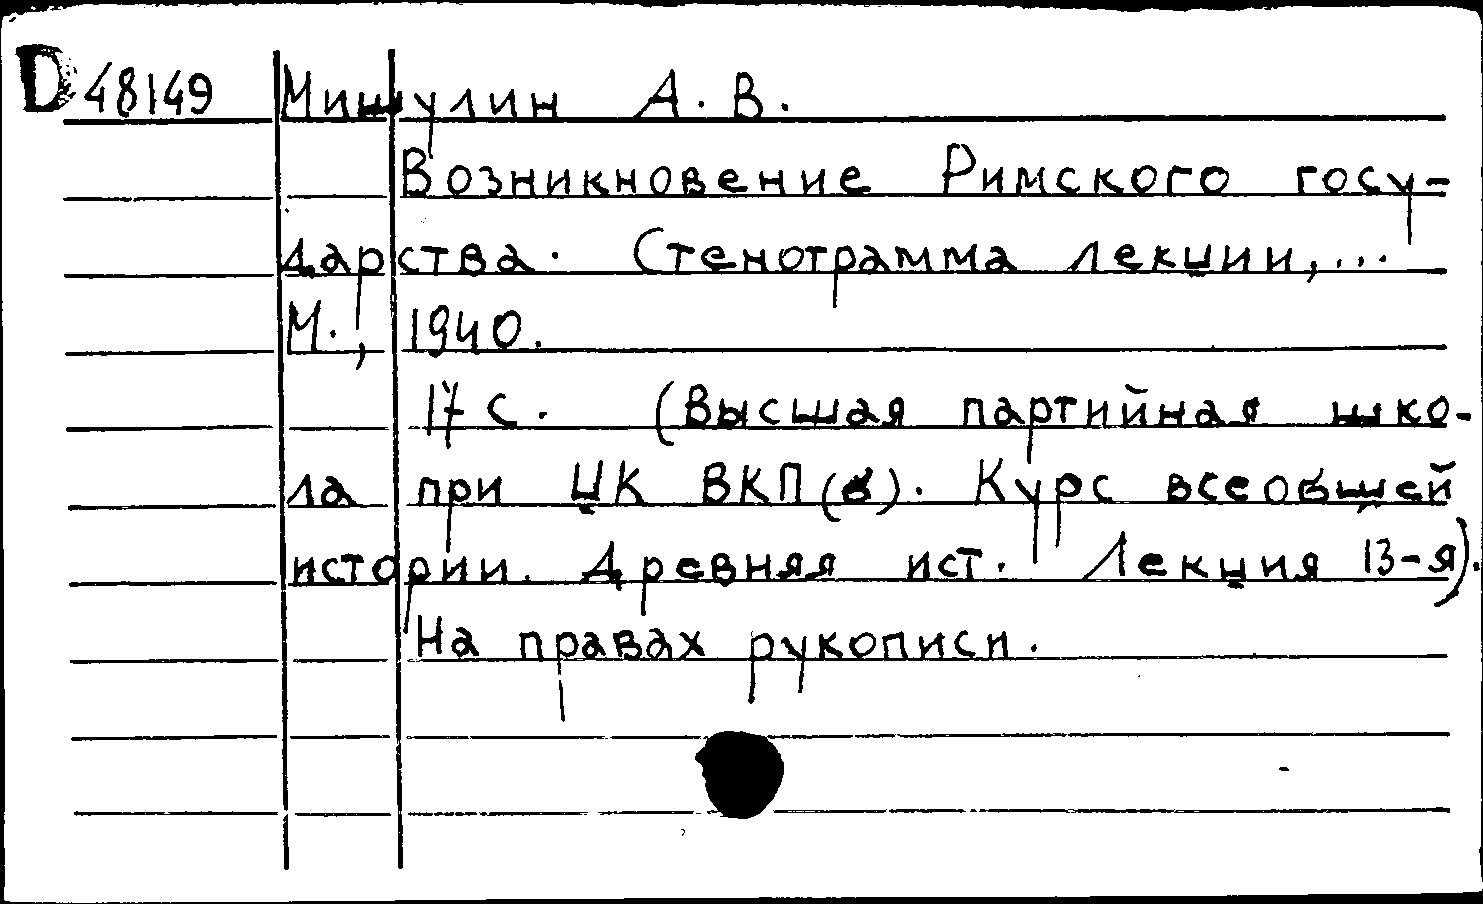 D 48149 Мишулин А. В.
Возникновение Римского госу-
дарства. Стенограмма лекции,...
М., 1940.
17 с. (Высшая партийная шко-
ла при ЦК ВКП(б). Курс всеобщей
истории. Древняя ист. Лекция 13-я).
На правах рукописи.